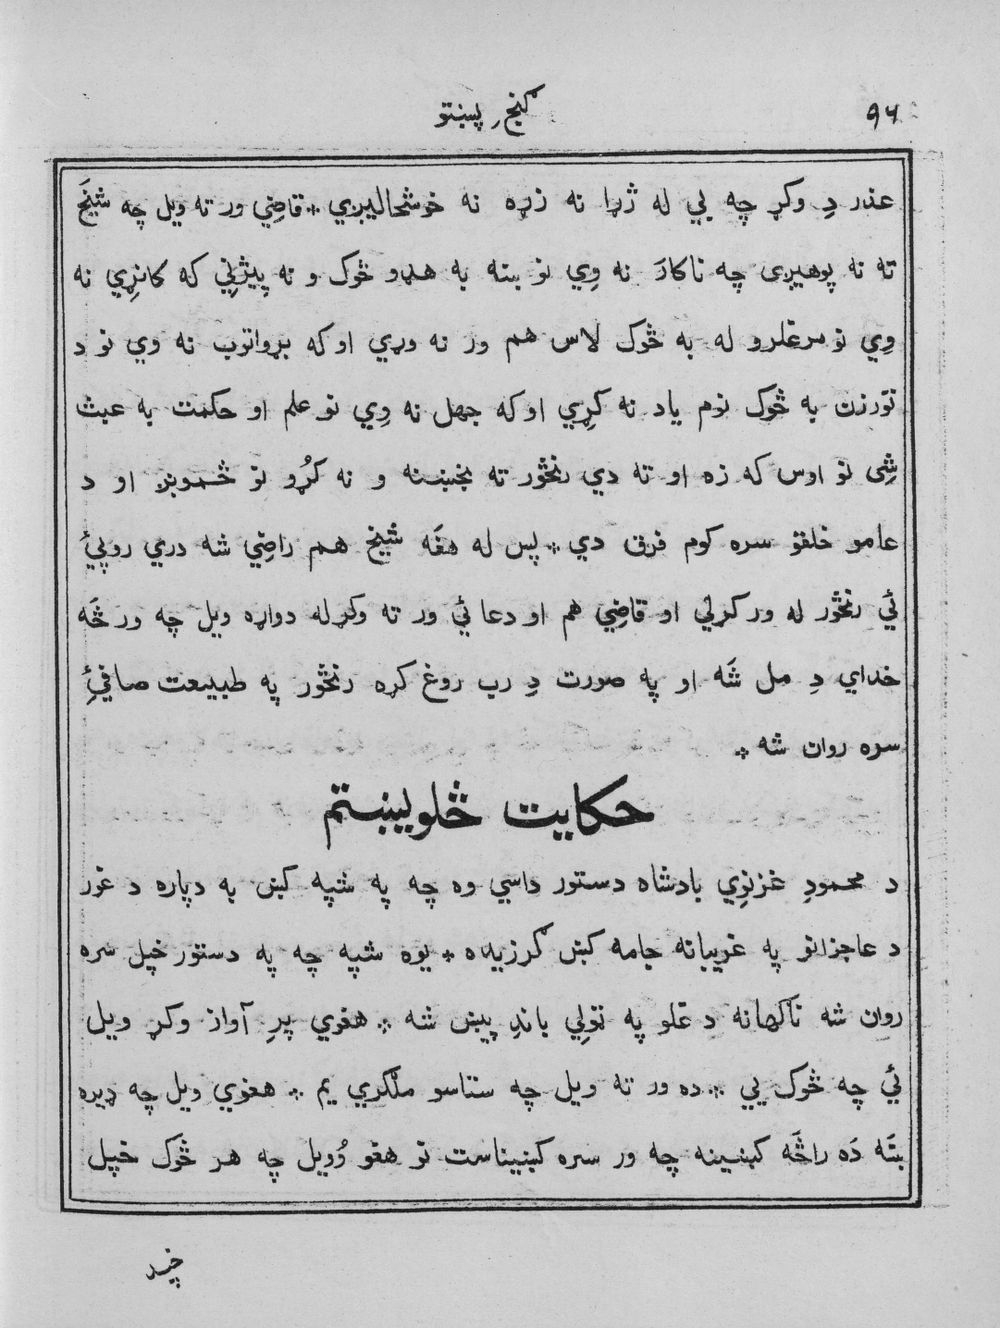 ٩٦
گنجِ پښتو
عذر دِ وکړ چه يې له ژړا نه زړه نه خوشحاليږي ⁘ قاضي ور ته ويل چه شيخَ
ته نه پوهيږی چه ناکارَ نه وِي نو ښه به هډو څوک و نه پيژني که کانړي نه
وِي نو مرغلرو له به څوک لاس هم ور نه وړي او که بړواتوب نه وي نو د
تورزن به څوک نوم ياد نه کړِي او که جهل نه وِي نو علم او حکمت به عبث
شِی نو اوس که زه او ته دي رنځور ته بخښنه و نه کړُو نو څموږ او د
عامو خلقو سره کوم فرق دي ⁘ پس له هغَه شيخ هم راضِي شه دري روپئ
ئي رنځور له ورکړلي او قاضِي هم او دعا ئي ور ته وکړله دواړه ويل چه ورځَه
خداي دِ مل شَه او په صورت دِ رب روغ کړه رنځور په طبيعت صافئِ
سره روان شه ⁘
حکايت څلويښتم
د محمودِ غزنوِي بادشاه دستور داسي وه چه په شپه کښ په دپاره د غور
د عاجزانو په غريبانه جامه کښ گرزيده ⁘ يوه شپه چه په دستور خپل سره
روان شه ناگهانه د غلو په ټولي باندِ پيښ شه ⁘ هغوي پرِ آواز وکړ ويل
ئي چه څوک يي ⁘ ده ور ته ويل چه ستاسو ملگري يم ⁘ هغوي ويل چه ډيره
ښَه دَه راځَه کښينه چه ور سره کښيناست نو هغو وُويل چه هر څوک خپل
خپـد